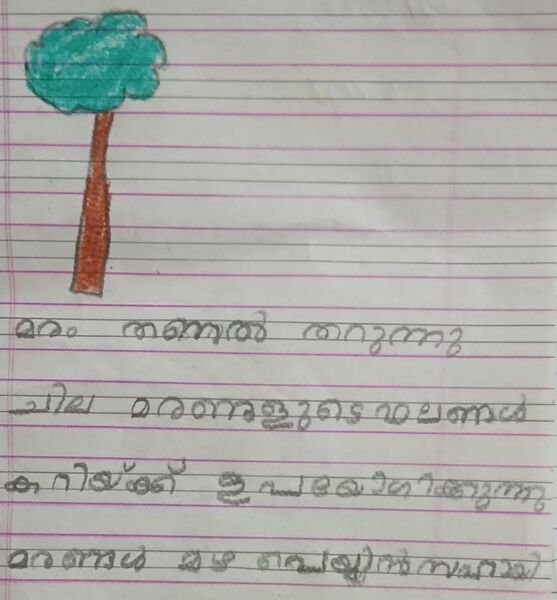 മരം തണൽ തറുന്നു
ചില മരങ്ങളുടെ ഫലങ്ങൾ
കറിയ്ക്ക് ഉപയോഗിക്കുന്നു
മരങ്ങൾ മഴ പെയ്യിൻ സഹായി